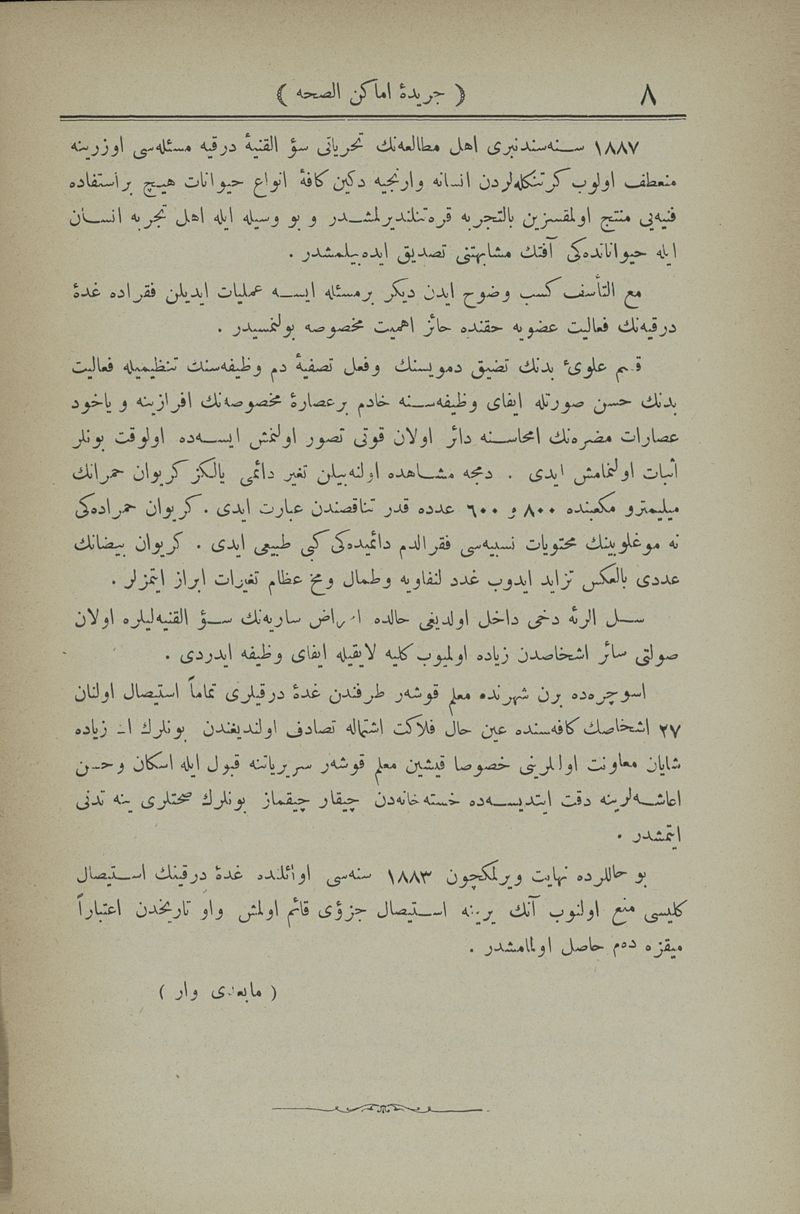 ٨
( جريدهٔ اماكن الصحه )
١٨٨٧ سنه‌سندنبرى اهل مطالعه‌نك تحرياتى سؤ القنيهٔ درقيه مسئله‌سى اوزرينه
منعطف اولوب كرتنكله‌لردن انسانه وارنجيه دكين كافهٔ انواع حيوانات هيچ براستفاده
فنيه‌يى منتج اولمقسزين بالتجربه قره‌تنلنديرلمشدر و بو وسيله ايله اهل تجربه انسان
ايله حيوانانده‌كى آفتك مشابهتنى تصديق ايده‌بيلمشدر .
مع التأسف كسب وضوح ايدن ديكر برمسئله ايسه عمليات ايديلن فقراده غدهٔ
درقيه‌نك فعاليت عضويه حقنده حائز اهميت مخصوصه بولنمسيدر .
قسم علوئ بدنك تضيق دمويسنك وفعل تصفيهٔ دم وظيفه‌سنك تنظيميله فعاليت
بدنك حسن صورتله ايفاى وظيفه‌سنه خادم برعصارهٔ مخصوصه‌نك افرازينه و ياخود
عصارات مضره‌نك امحاسنه دائر اولان قوتى تصور اولنمش ايسه‌ده اولوقت بونلر
اثبات اولنمامش ايدى . دمجه مشاهده اولنه‌بيلن تغير دائمى يالكز كريوان حمرانك
ميليمترو مكعبنده ٨٠٠ و ٦٠٠ عدده قدر تناقصندن عبارت ايدى . كريوان حمراده‌كى
نه موغلوبينك محتويات نسبيه‌سى فقرالدم دائميده‌كى كبى طبيعى ايدى . كريوان بيضانك
عددى بالعكس تزايد ايدوب غدد لنفاويه وطمال ومخ عظام تغيرات ابراز ايتمزلر .
سل الرئه دخى داخل اولديغى حالده امراض ساريه‌نك سؤ القنيه‌ليلره اولان
صولتى سائر اشخاصدن زياده اولميوب كليه لايقيله ايفاى وظيفه ايدردى .
اسوچره‌ده برن شهرنده معلم قوشه‌ر طرفندن غدهٔ درقيلرى تماماً استيصال اولنان
٢٧ اشخاصك كافه‌سنده عين حال فلاكت اشتماله تصادف اولنديغندن بونلرك اك زياده
شايان معاونت اوللرينى خصوصا قيشين معلم قوشه‌ر سريرياتنه قبول ايله اسكان وحسن
اعاشه‌لرينه دقت ايتديسه‌ده خسته‌خانه‌دن چيقار چيقماز بونلرك صحتلرى ينه تدنى
ايتمشدر .
بو حاللرده نهايت ويرلمكچون ١٨٨٣ سنه‌سى اوائلنده غدهٔ درقينك استيصال
كليسى منع اولنوب آنك يرينه استيصال جزؤى قائم اولمش واو تاريخدن اعتباراً
ميقزه ده‌م حاصل اولمامشدر .
( مابعدى وار )